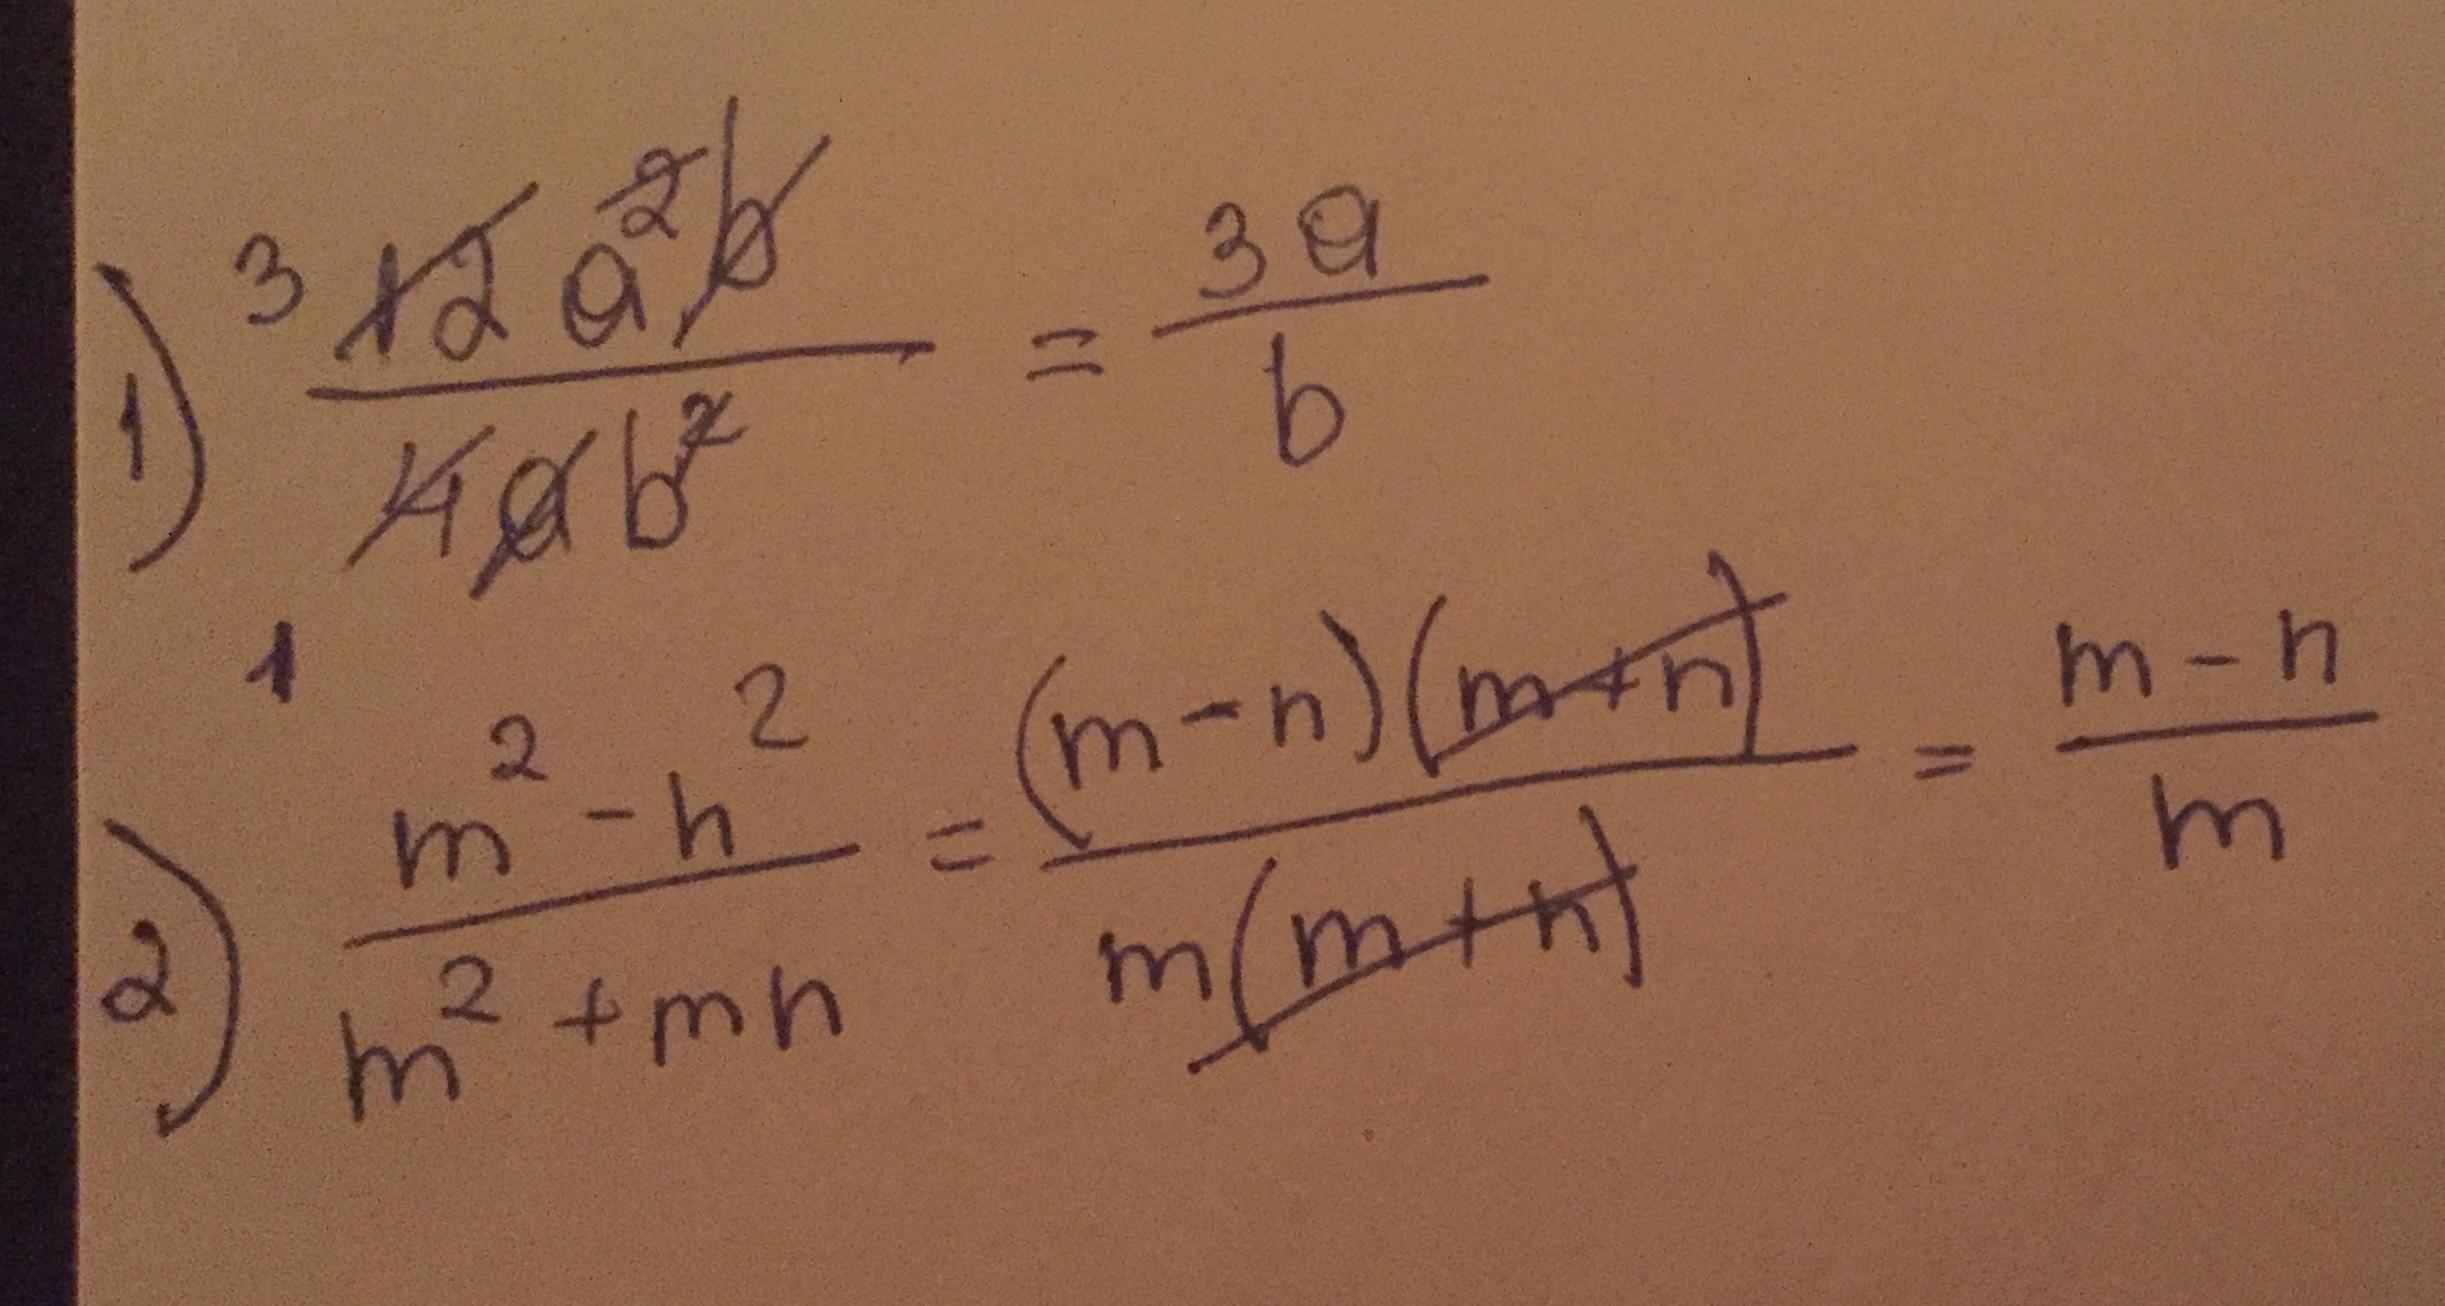 1) 3 12a²b / 4ab² = 3a / b
1
2) m² - n² / m² + mn = (m - n)(m + n) / m(m + n) = m - n / m